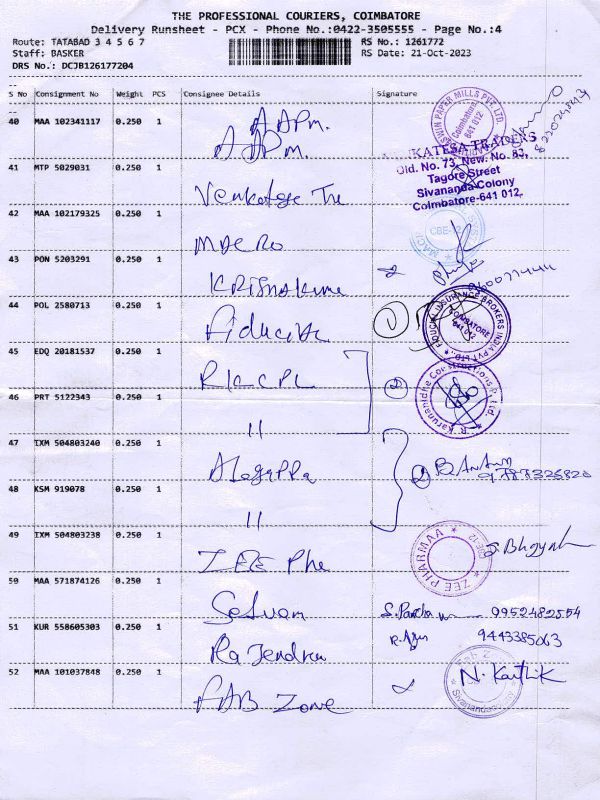 THE PROFESSIONAL COURIERS, COIMBATORE
Delivery Runsheet - PCX - Phone No.:0422-3505555 - Page No.:4
Route: TATABAD 3 4 5 6 7 RS No.: 1261772
Staff: BASKER RS Date: 21-Oct-2023
DRS No.: DCJB126177204
S No Consignment No Weight PCS Consignee Details Signature
40 MAA 102341117 0.250 1 AAPM.
AAPM.
ASWIN PAPER MILLS PVT. LTD. Coimbatore 641 012
41 MTP 5029031 0.250 1
VENKATESA TRADERS
Old. No. 73, New. No. 83,
Tagore Street
Sivananda Colony
Coimbatore-641 012.
42 MAA 102179325 0.250 1 MACRO
CBE-12
43 PON 5203291 0.250 1
44 POL 2580713 0.250 1
FIDUCIA INSURANCE BROKERS INDIA PVT LTD. COIMBATORE 641 012
45 EDQ 20181537 0.250 1 RKCPL
46 PRT 5122343 0.250 1 "
47 IXM 504803240 0.250 1 Alagappa
48 KSM 919078 0.250 1 "
49 IXM 504803238 0.250 1 ZEE Pha
ZEE PHARMAA
50 MAA 571874126 0.250 1 Selvam 9952482554
51 KUR 558605303 0.250 1 Rajendran 9443385063
52 MAA 101037848 0.250 1 FAB Zone N. Karthik